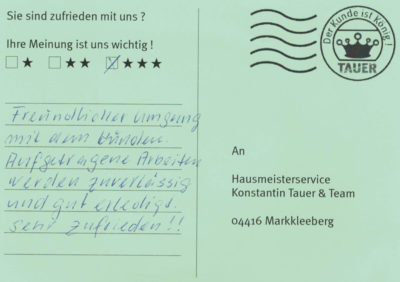 Sie sind zufrieden mit uns ?
Ihre Meinung ist uns wichtig !
Freundlicher Umgang
mit dem Kunden.
Aufgetragene Arbeiten
werden zuverlässig
und gut erledigt.
Sehr zufrieden!!
Der Kunde ist König !
TAUER
An
Hausmeisterservice
Konstantin Tauer & Team
04416 Markkleeberg